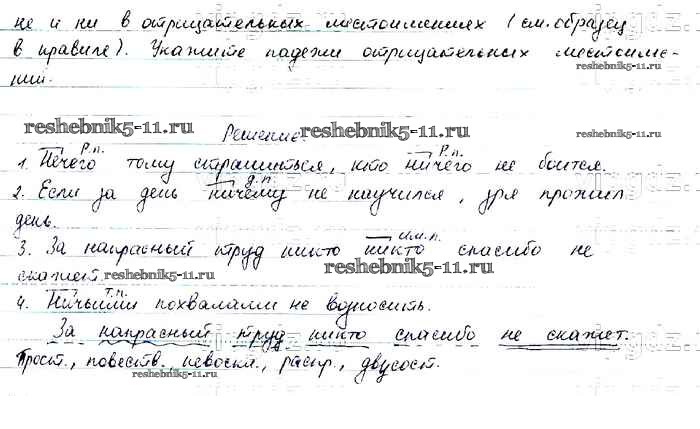 не и ни в отрицательных местоимениях (см. образец
в правиле). Укажите падежи отрицательных местоиме-
ний.
reshebnik5-11.ru
Решение.
reshebnik5-11.ru
reshebnik5-11.ru
Р.п. Р.п.
1. Нечего тому страшиться, кто ничего не боится.
Д.п.
2. Если за день ничему не научился, зря прожил
день.
Им.п.
3. За напрасный труд никто никто спасибо не
скажет.
reshebnik5-11.ru
reshebnik5-11.ru
Т.п.
4. Ничьими похвалами не возносить.
За напрасный труд никто спасибо не скажет.
Прост., повеств. невоскл., распр., двусост.
reshebnik5-11.ru